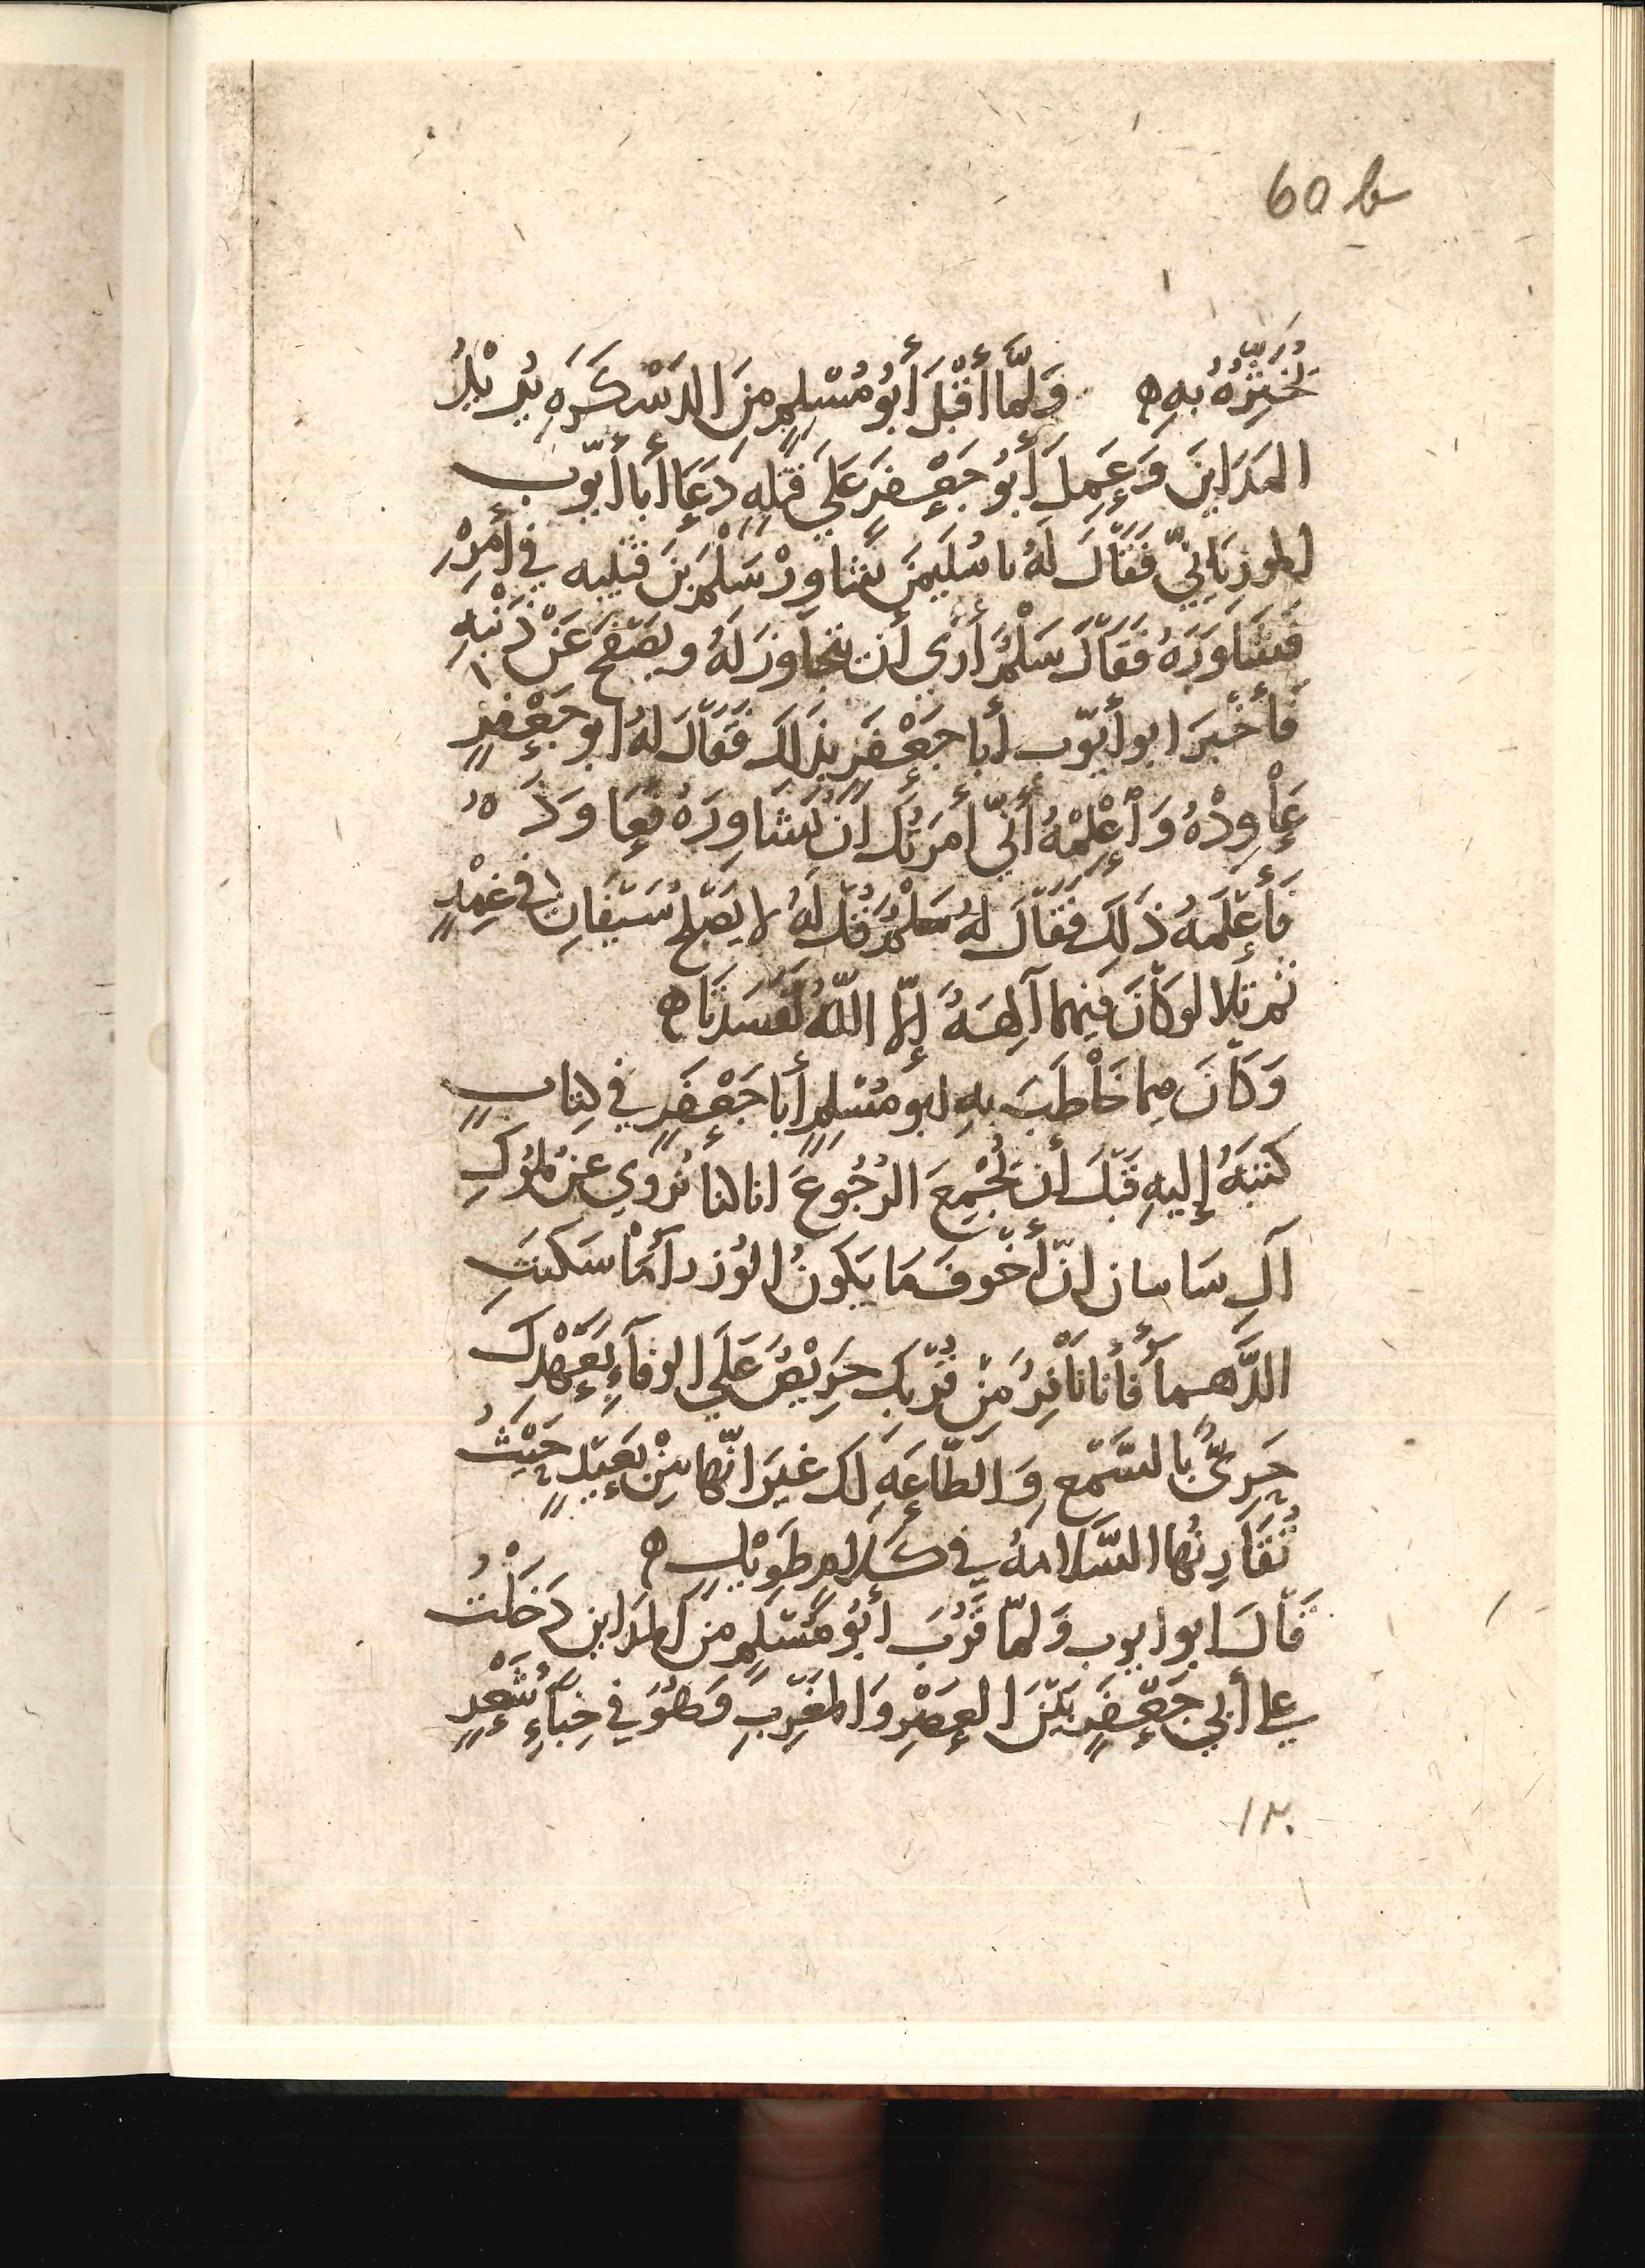 60 b
يُخَبِّرُهُ بِهِ ه وَلَمَّا أَقْبَلَ أَبُو مُسْلِمٍ مِنَ الدَسْكَرَهِ يُرِيْدُ
المَدَايِنَ وَعَمِلَ أَبُو جَعْفَرٍ عَلَى قَتْلِهِ دَعَا أَبا أَيّوب
المورِيَانِيّ فَقَالَ لَهُ يا سُلَيمَنَ شاوِرْ سَلْمَ بنَ قتيبه في أَمْرِهِ
فَشَاوَرَهُ فَقَالَ سَلْمٌ أَرَى أَن يتجاوزَ لَهُ ويصْفَحَ عَنْ ذَنْبِهِ
فَأَخْبَرَ ابو أيّوب أبا جَعْفَرٍ بذَلكَ فَقَالَ لهُ ابو جَعْفَرٍ
عَاوِدْهُ وَأَعْلِمْهُ أَنّي أَمَرتُكَ انْ تُشَاوِرَهُ فَعَاوَدَهُ
فَأَعْلَمَهُ ذَلِكَ فَقَالَ لهُ سَلْمٌ قُلْ لَهُ لا يَصْلحُ سَيْفَانِ في غِمْدٍ
ثم تلا لو كَانَ فيهما آلِهَةٌ إِلّا اللّهُ لَفَسَدَتَا ه
وَكَانَ مِما خَاطَبَ بهِ ابو مُسْلِمٍ أبا جَعْفَرٍ في كِتابٍ
كتبَهُ إليهِ قَبْلَ أن يُجْمِعَ الرُجُوعَ انا كنا نُروي عن مُلوكِ
آلِ سَاسان انّ أَخْوفَ مَا يَكونُ الوُزرآءُ مَا سَكَنَتِ
الدَّهماءُ فأنا نَافِرٌ مِنْ قُرْبِكَ حَرِيْصٌ عَلَى الوفآءِ بِعَهْدِكَ
حَرِيٌّ بالسَّمْعِ وَالطَّاعَهِ لَك غيرَ انّها مِنْ بَعِيدٍ حَيْثُ
تُقَارِنُها السَّلَامهُ في كَلَامٍ طَوِيْلٍ ه
قَالَ ابو ايوب وَلمّا قَرُبَ أبُو مُسْلِمٍ مِنَ المدَاينِ دَخَلْتُ
على أبي جَعْفَرٍ بَيْنَ العَصْرِ وَالمغْرِبِ وَهُوَ في خِبَاءِ شَعْرٍ
١٢٠